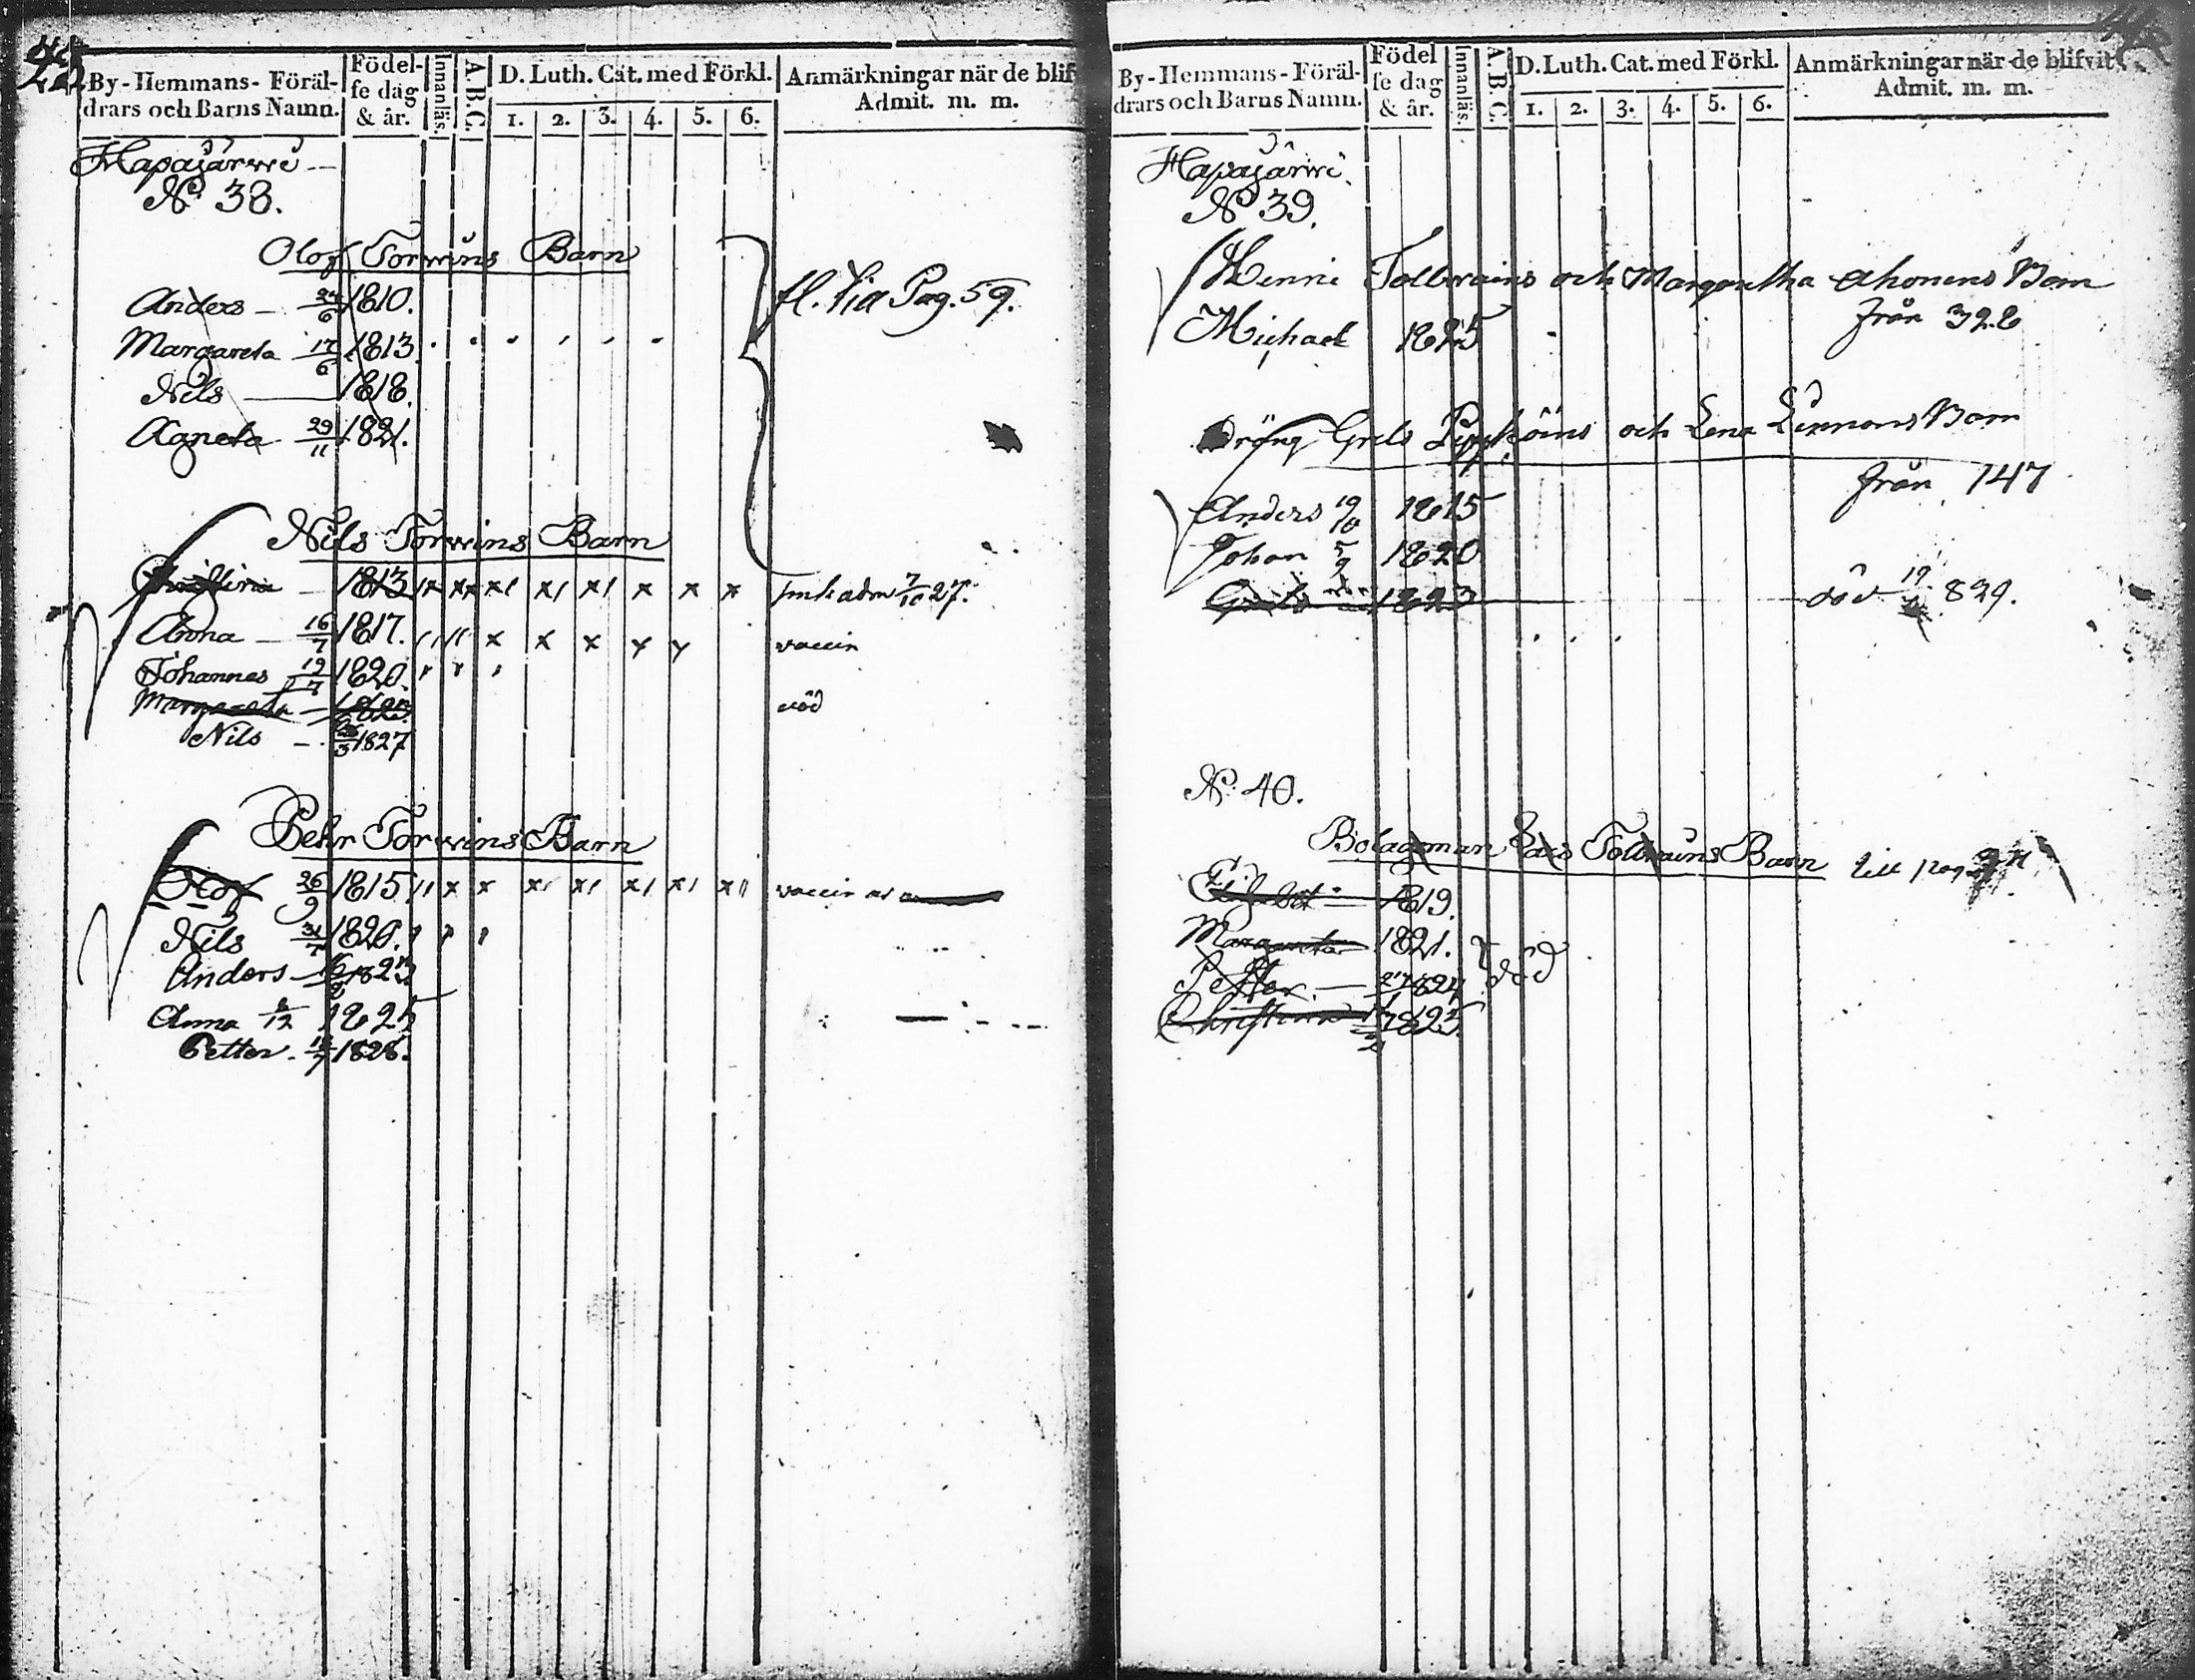 By-Hemmans-Föräl-
drars och Barns Namn.
Födel-
se dag
& år.
Innanläs.
A.B.C.
D. Luth. Cat. med Förkl.
1. 2. 3. 4. 5. 6.
Anmärkningar när de blif
Admit. m. m.
Hapajärwi
N° 38.
Olof Torwins Barn
Anders 24/6 1810.
fl. via Pag. 59.
Margareta 17/6 1813
Nils 1818.
Agneta 29/11 1821.
Nils Torwins Barn
Christina 1813 adm 7/10 27.
Anna 16/7 1817. vaccin
Johannes 19/7 1820.
Margareta 1825 död
Nils 1827
Pehr Torwins Barn
Olof 26/9 1815 vaccin
Nils 1820.
Anders 1823
Anna 1825
Petter 1828.
By-Hemmans-Föräl-
drars och Barns Namn.
Födel
se dag
& år.
Innanläs.
A.B.C.
D. Luth. Cat. med Förkl.
1. 2. 3. 4. 5. 6.
Anmärkningar när de blifvit
Admit. m. m.
Hapajärwi.
N° 39.
Henric Tolwains och Margaretha Ahonens Barn
från 328
Michael 1825
Dräng Grels och Lena Barn
från 147
Anders 1815
Johan 5/9 1820
Grels 1823 död 829.
N° 40.
Bolagsman Lars Tolwains Barn till pag
Elisabet 1819.
Margareta 1821.
Petter 1824 död
Christina 1825